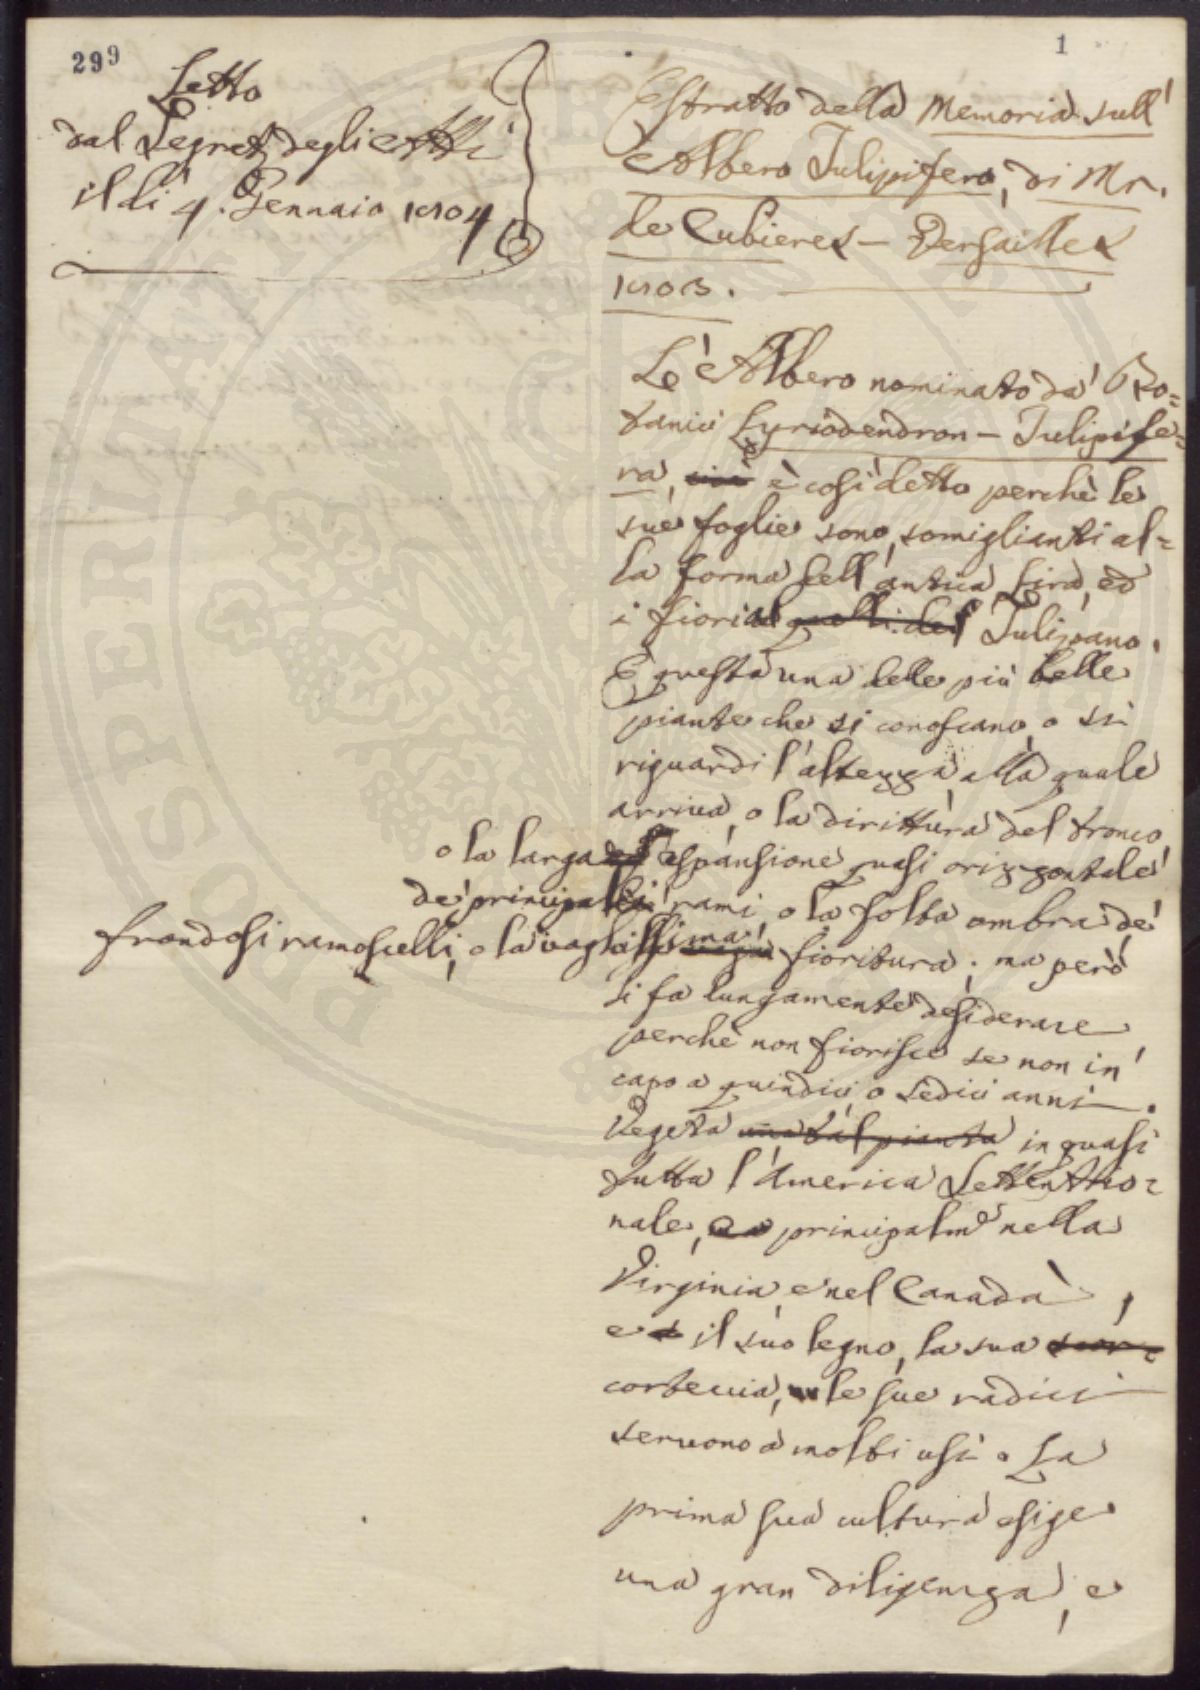 299
1
Letto
dal Segret. degli Atti
il dì 4. Gennaio 1804
Estratto della Memoria sull'
Albero Tulipifero, di Mr.
de Cubieres – Versailles
1803.
L'Albero nominato da' Bo=
tanici Lyriodendron – Tulipife=
ra, è così detto perchè le
sue foglie sono somiglianti al=
la forma dell'antica Lira, ed
i fiori al Tulipano.
È questa una delle più belle
piante che si conoscano, o si
riguardi l'altezza alla quale
arriva, o la dirittura del tronco
o la larga espansione quasi orizzontale
de' principali rami, o la folta ombra de'
frondosi ramoscelli, o la vaghissima fioritura; ma però
si fa lungamente desiderare
perchè non fiorisce se non in
capo a quindici o sedici anni.
Vegeta una tal pianta in quasi
tutta l'America Settentrio=
nale, principalme nella
Virginia e nel Canadà,
e il suo legno, la sua scor=
corteccia, le sue radici
servono a molti usi. La
prima sua cultura esige
una gran diligenza, e
PROSPERITATI